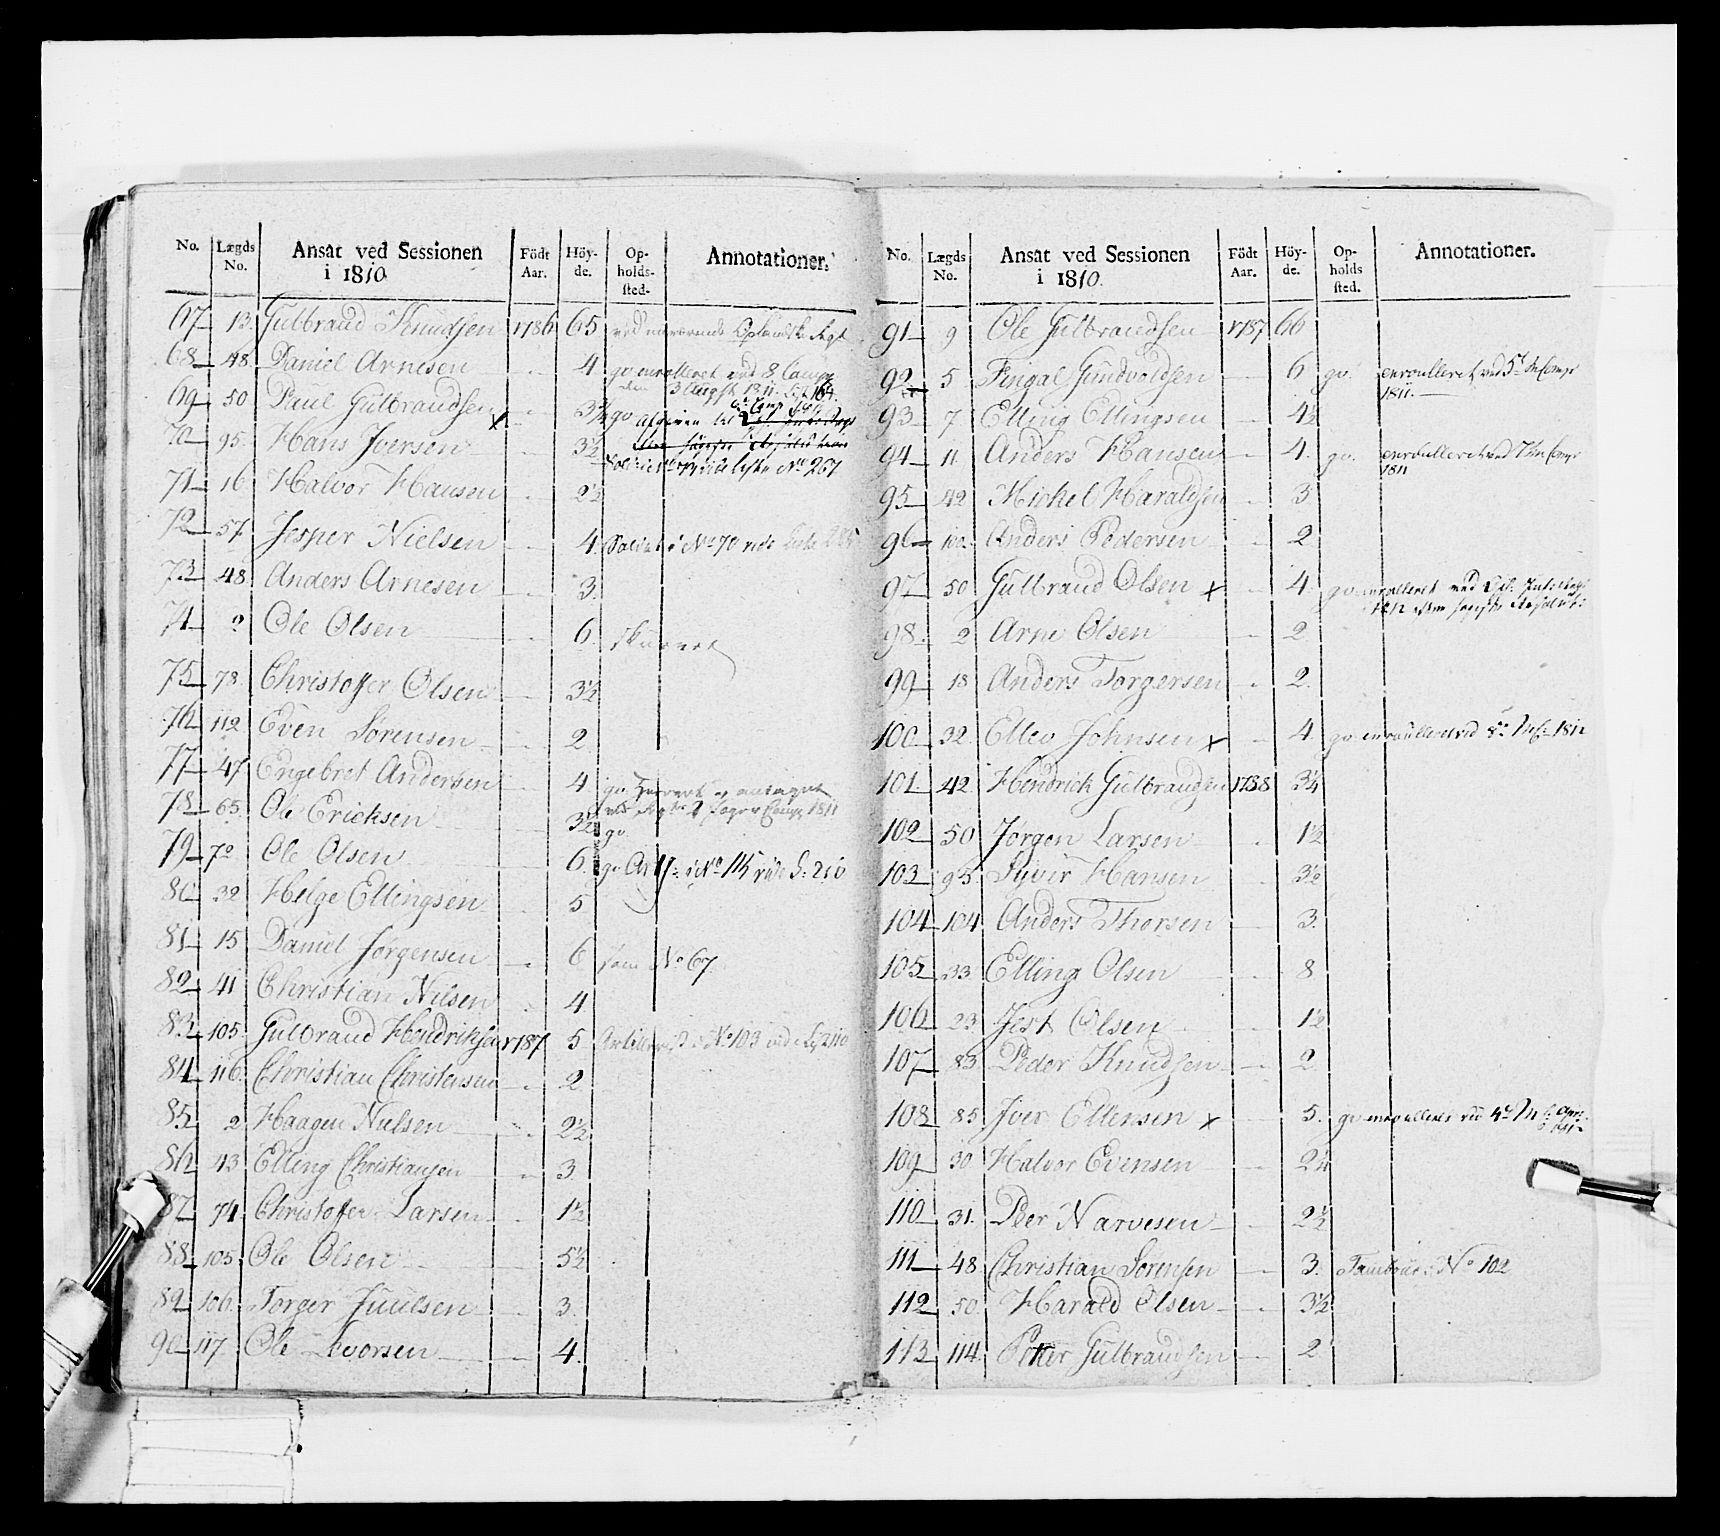 No. Lægds No. Ansat ved Sessionen i 1810 Födt Aar. Höyde. Opholdssted. Annotationer.
67 13. Gulbrand Knudsen 1786 65
68 48. Daniel Arnesen 4 gv enrolleret ved 8 Comp
69 50 Paul Gulbrandsen x 3½ gv Afgiven til
70 95. Hans Joersen 3½ No 267
71 16 Halvor Hansen 2½
72 57. Jesper Nielsen 4. Soldat i No 70 vide Liste
73 48 Anders Arnesen 3.
74 2 Ole Olsen 6.
75 78 Christoffer Olsen 3½
76 112 Even Sørensen 2
77 47 Engebret Andersen 4 gv. antaget
78 65. Ole Ericksen 3½ gv. 1811
79 72 Ole Olsen 6. gv No 115 vide
80 32 Helge Ellingsen 5
81 15 Daniel Jørgensen 6 som No 67
82 41 Christian Nilsen 4
83 105. Gulbrand Hendriksen 1787 5 No 103 vide
84 116. Christian Christensen 2
85 2 Haagen Nielsen 2½
86 43 Elling Christiansen 3.
87 74. Christoffer Larsen 1½
88 105. Ole Olsen 5½
89 106. Torger Juulsen 3.
90 117 Ole Ivorsen 4.
No. Lægds No. Ansat ved Sessionen i 1810. Födt Aar. Höyde. Opholds sted. Annotationer.
91 9 Ole Gulbrandsen 1787 66
92 5 Fingal Gundvoldsen 6 gv. enroulleret ved 5te Comp
1811.
93 7 Elling Ellingsen 4½
94 11 Anders Hansen 4. gv. enroulleret ved 7de Comp
1811
95 42 Michel Haraldsen 3
96 100. Anders Pedersen 2
97 50 Gulbrand Olsen x 4. gv enrolleret ved
98 2 Arne Olsen 2
99 18 Anders Torgersen 2.
100 32. Ellev Johnsen x 4. gv enroulleret ved
101. 42. Hendrick Gulbrandsen 1788 3¼
102 50 Jørgen Larsen 1½
103 95. Syver Hansen 3½
104 104 Anders Thorsen 3.
105 33 Elling Olsen 8
106 23. Jest Olsen 1½
107 83 Peder Knudsen 2
108 85 Iver Ellensen x 5. gv enroulleret ved 4de
109 30 Halvor Evensen 2¼
110 31. Peer Narvesen 2½
111 48 Christian Sørensen 3. Tambour No 102
112 50. Harald Olsen 3½
113 114 Peter Gulbrandsen 2